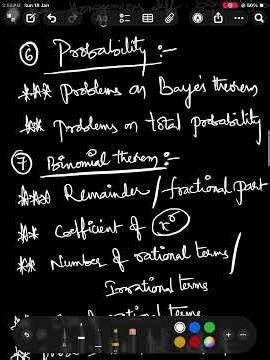 3:55 PM Sun 18 Jan
50%
⑥ Probability :-
*** problems on Baye's theorem
*** problems on total probability
⑦ Binomial theorem :-
*** Remainder / fractional part
*** Coefficient of x^r
** Number of rational terms /
Irrational terms
terms